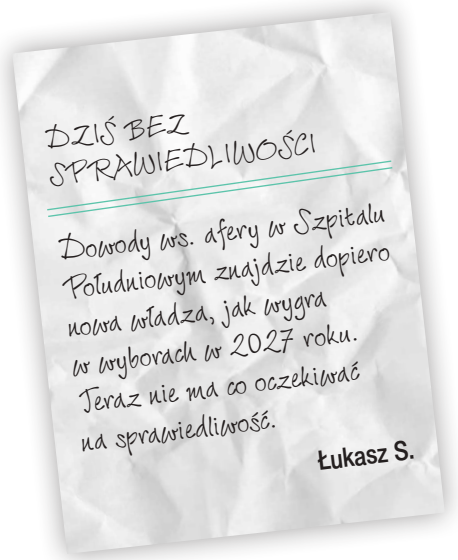 DZIŚ BEZ
SPRAWIEDLIWOŚCI
Dowody ws. afery w Szpitalu
Południowym znajdzie dopiero
nowa władza, jak wygra
w wyborach w 2027 roku.
Teraz nie ma co oczekiwać
na sprawiedliwość.
Łukasz S.